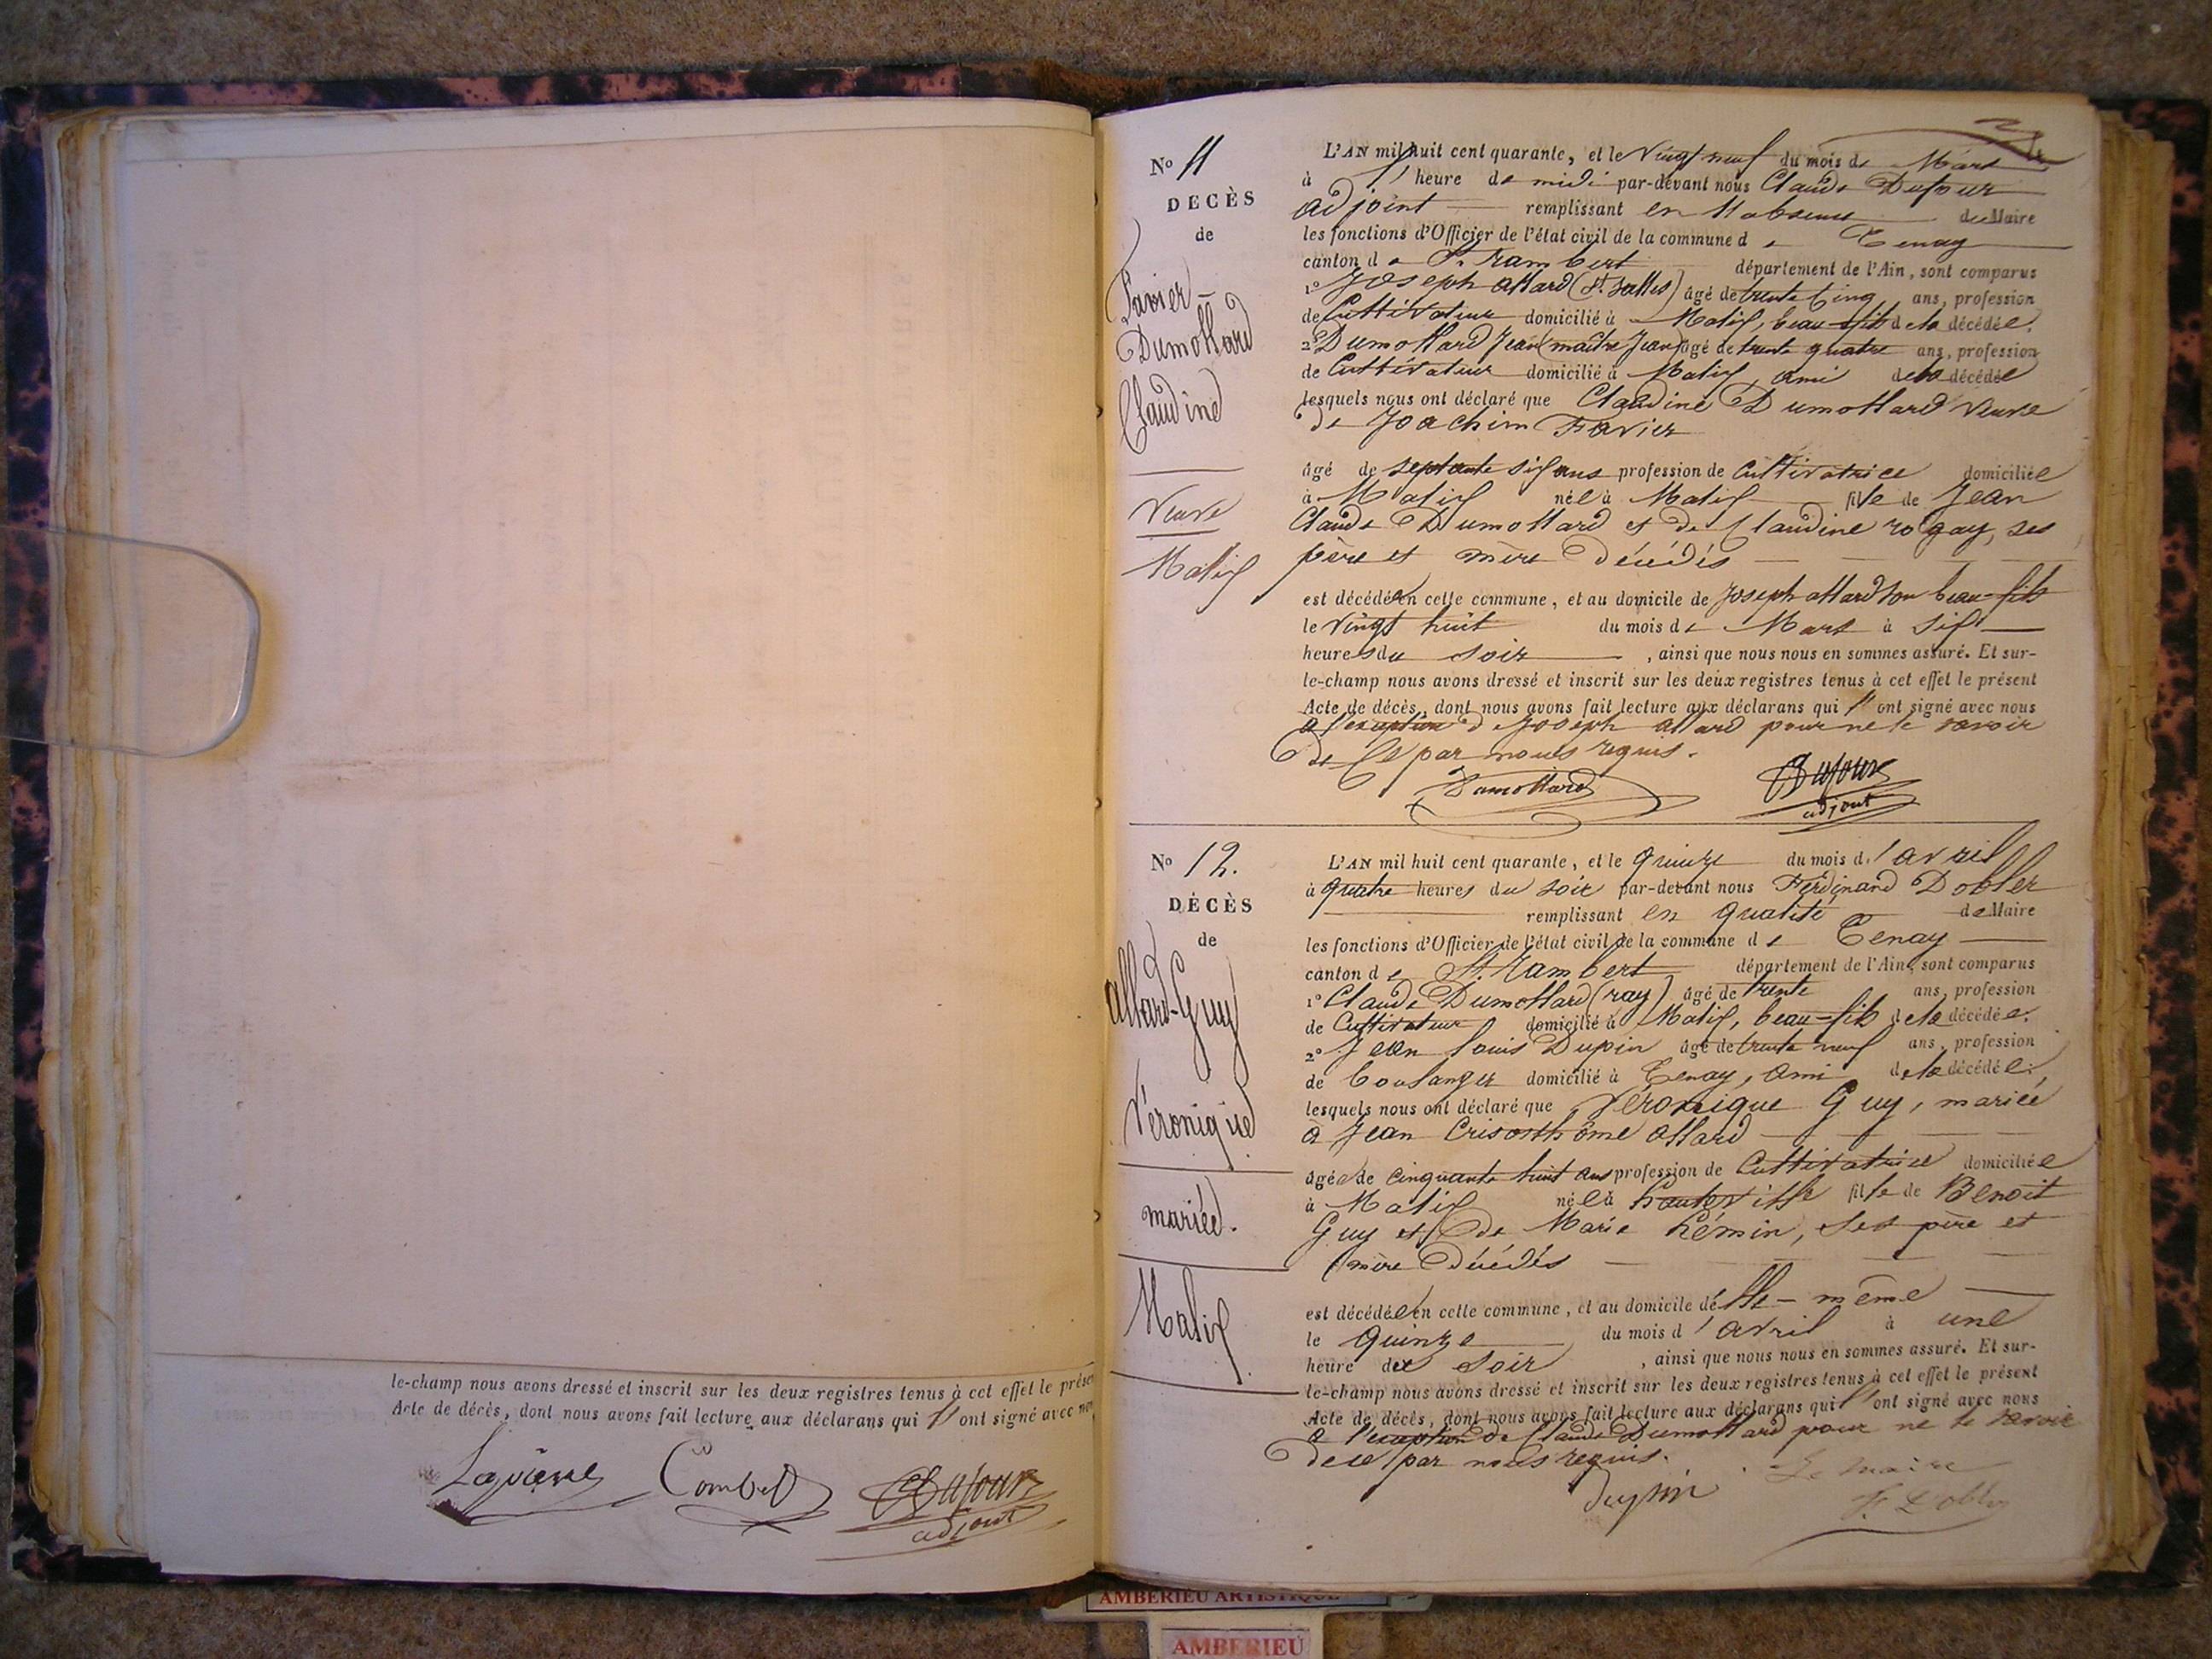 le-champ nous avons dressé et inscrit sur les deux registres tenus à cet effet le prése
Acte de décès, dont nous avons fait lecture aux déclarans qui ont signé avec no
Combet
CDufour
adjoint
No 11
DÉCÈS
de
Favier-
Dumollard
Claudine
Veuve
Malix
L'AN mil huit cent quarante, et le Vingt neuf du mois de Mars
à l' heure de midi par-devant nous Claude Dufour
adjoint remplissant en l'absence du Maire
les fonctions d'Officier de l'état civil de la commune de Tenay
canton de St. Rambert département de l'Ain, sont comparus
1o Joseph allard (St. Salles) âgé de trente cinq ans, profession
de Cultivateur domicilié à Malix, beau-fils de la décédée.
2o Dumollard Jean (maître Jean) âgé de trente quatre ans, profession
de Cultivateur domicilié à Malix, ami de la décédée
lesquels nous ont déclaré que Claudine Dumollard Veuve
de Joachim Favier
âgé de septante six ans profession de Cultivatrice domiciliée
à Malix née à Malix fille de Jean
Claude Dumollard et de Claudine rogay, ses
père et mère décédés
est décédée en cette commune, et au domicile de Joseph allard son beau-fils
le Vingt huit du mois de Mars à six
heures du soir, ainsi que nous nous en sommes assuré. Et sur-
le-champ nous avons dressé et inscrit sur les deux registres tenus à cet effet le présent
Acte de décès, dont nous avons fait lecture aux déclarans qui l' ont signé avec nous
à l'exception de Joseph allard pour ne le savoir
de ce par nous requis.
Dumollard
CDufour
adjoint
No 12.
DÉCÈS
de
allard-Guy
Véronique
mariée.
Malix
L'AN mil huit cent quarante, et le quinze du mois d'avril
à quatre heures du soir par-devant nous Ferdinand Dobler
remplissant en qualité de Maire
les fonctions d'Officier de l'état civil de la commune de Tenay
canton de St. Rambert département de l'Ain, sont comparus
1o Claude Dumollard (ray) âgé de trente ans, profession
de Cultivateur domicilié à Malix, beau-fils de la décédée.
2o Jean Louis Dupin âgé de trente neuf ans, profession
de boulanger domicilié à Tenay, ami de la décédée.
lesquels nous ont déclaré que Véronique Guy, mariée
à Jean Crisosthôme allard
âgée de cinquante huit ans profession de Cultivatrice domiciliée
à Malix née à hauteville fille de Benoit
Guy et de Marie hémin, ses père et
mère décédés
est décédée en cette commune, et au domicile d'elle-même
le quinze du mois d'avril à une
heure du soir, ainsi que nous nous en sommes assuré. Et sur-
le-champ nous avons dressé et inscrit sur les deux registres tenus à cet effet le présent
Acte de décès, dont nous avons fait lecture aux déclarans qui l' ont signé avec nous
à l'exception de Claude Dumollard pour ne le savoir
de ce par nous requis.
dupin
Le maire
F. Dobler
AMBERIEU ARTISTIQUE
AMBERIEU